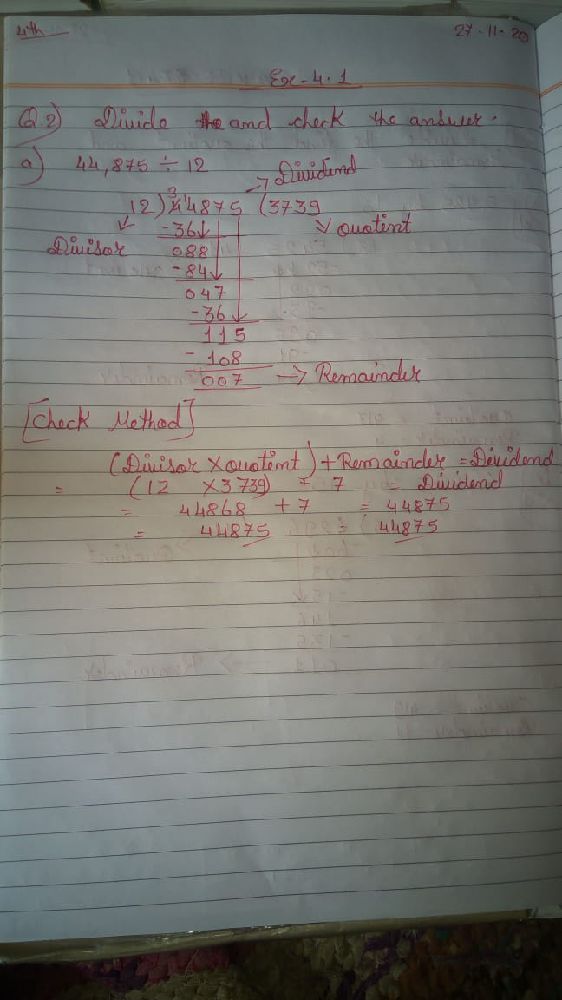 4th 27-11-20
Ex-4.1
Q2) Divide the and check the answer.
a) 44,875 ÷ 12
→ Dividend
12) 44875 (3739
Divisor -36 → Quotint
088
-84
047
-36
115
-108
007 → Remainder
[Check Method]
(Divisor x Quotint) + Remainder = Devidend
= (12 x 3739) = 7 = Dividend
= 44868 + 7 = 44875
= 44875 44875